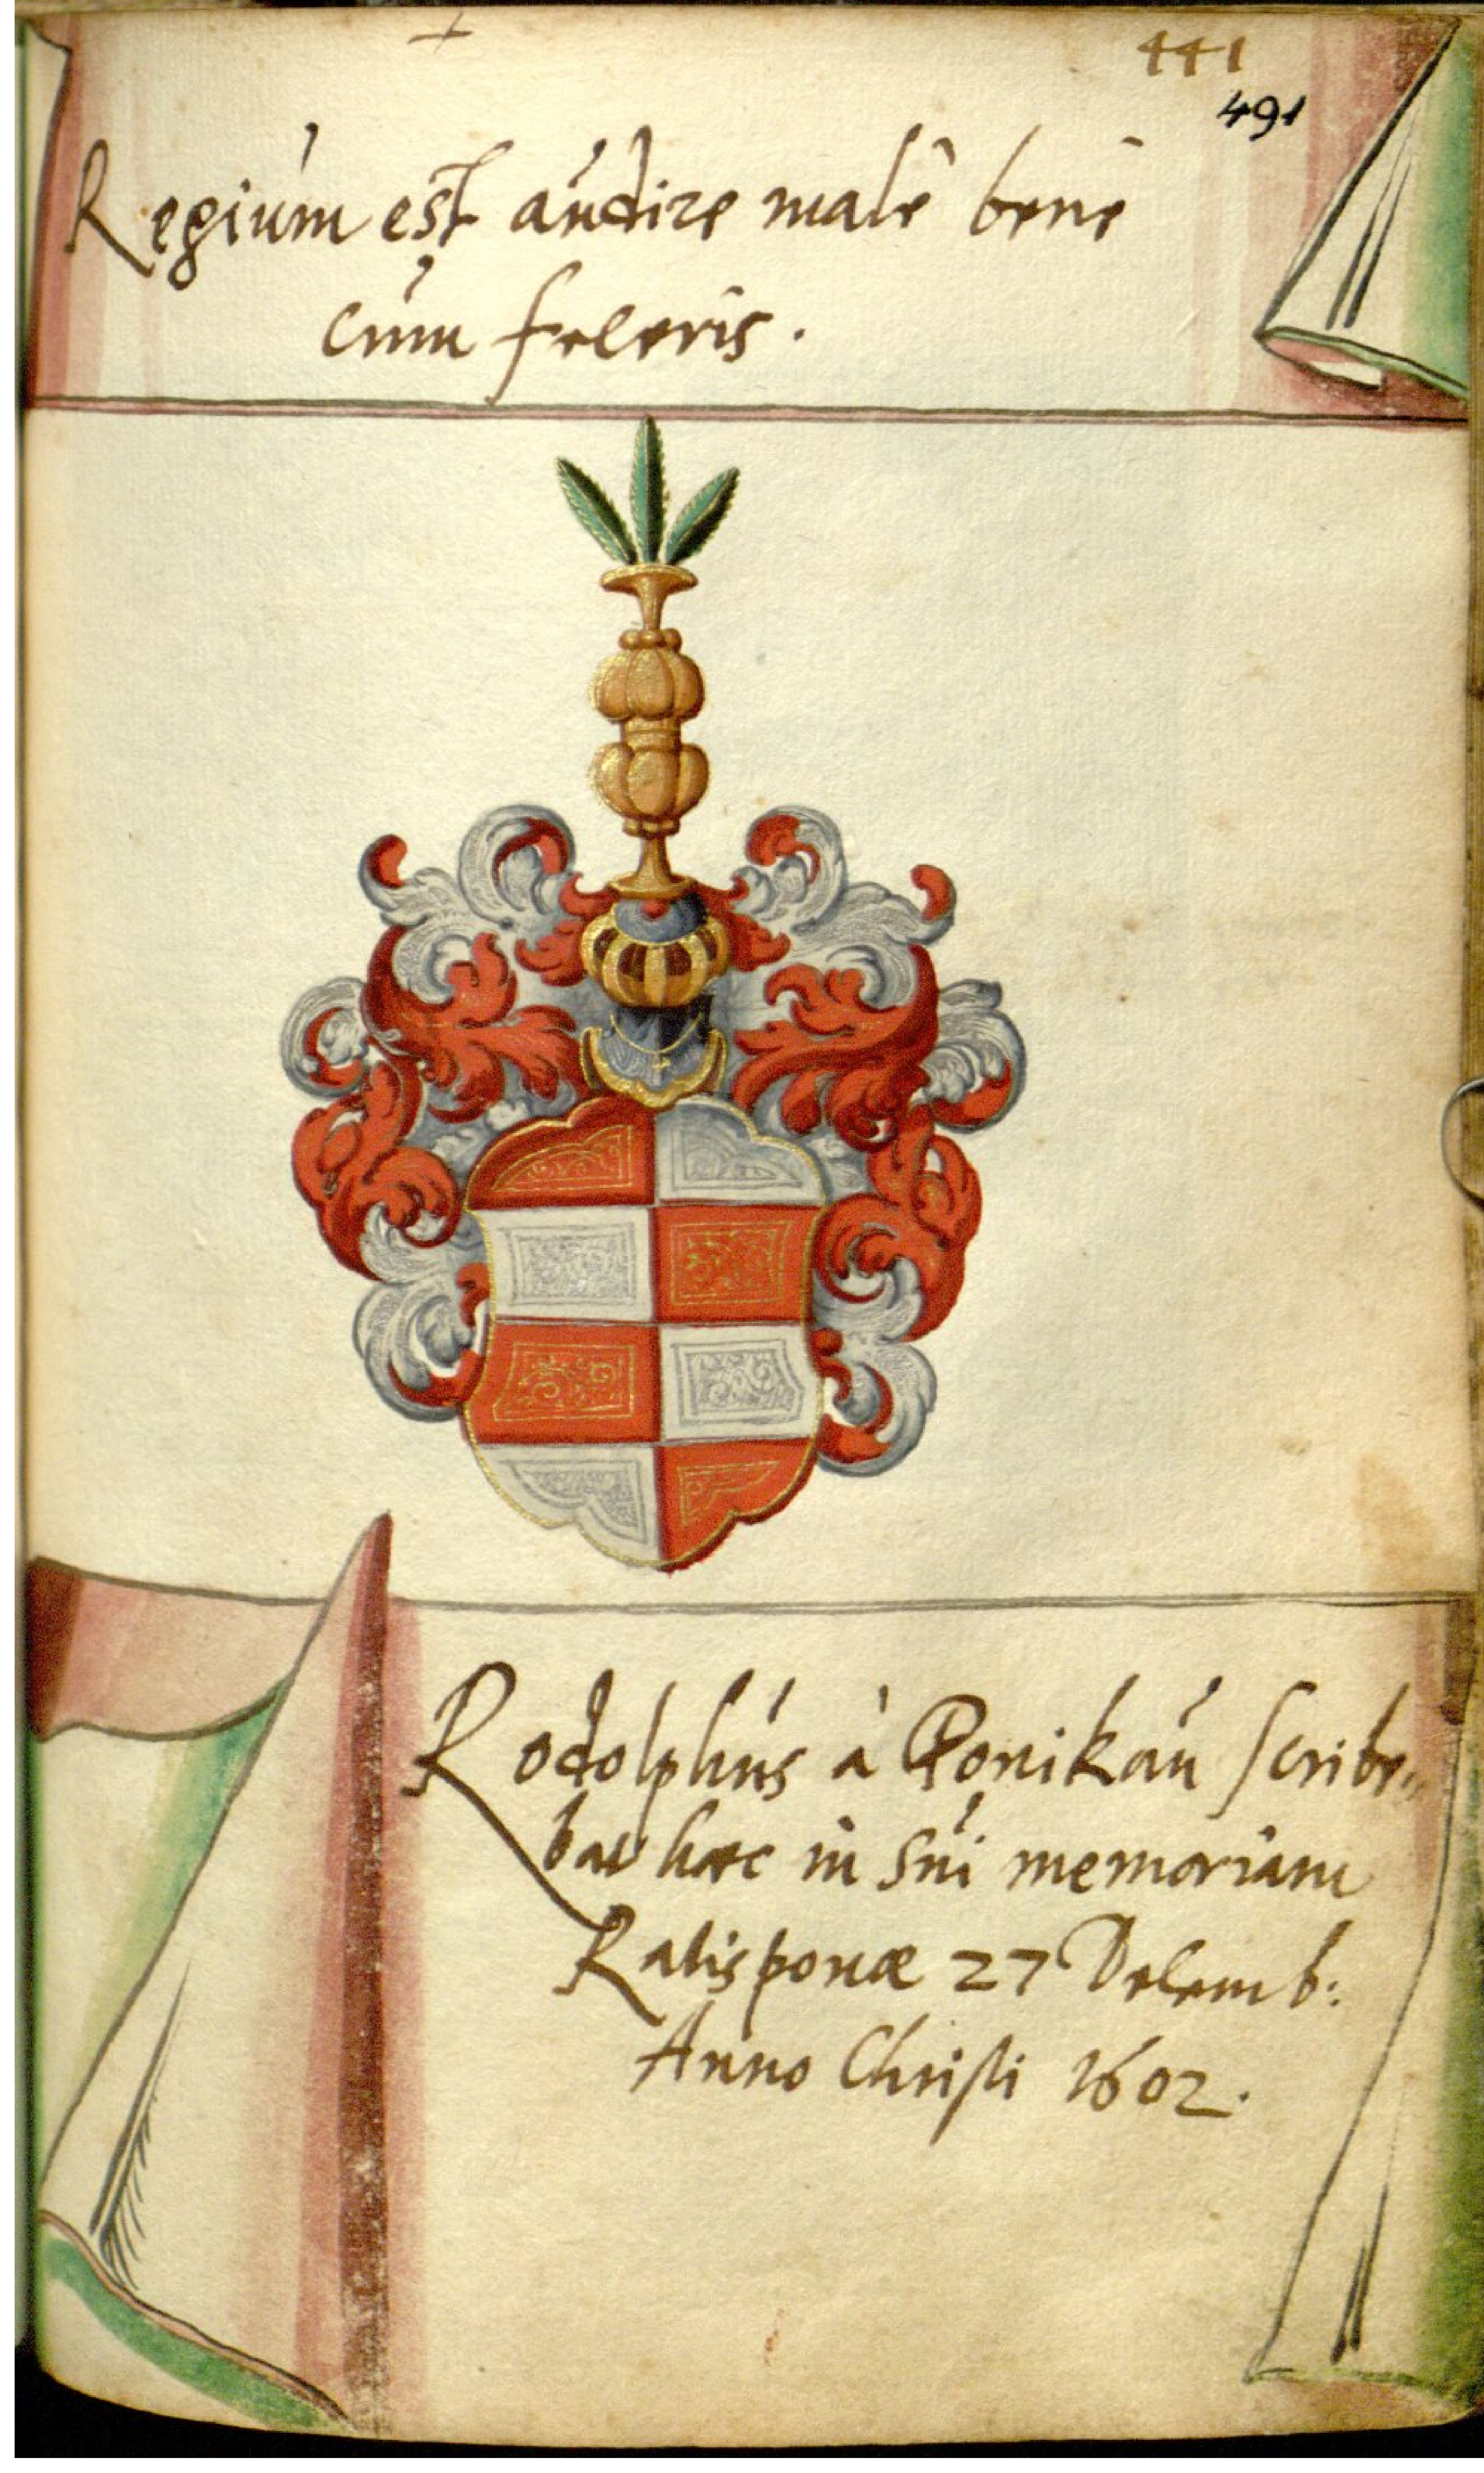 441
491
Regium est audire malè benè
cum feceris.
Rodolphus à Ponikau scribe„
bat haec in sui memoriam
Ratisponæ 27 Decemb:
Anno Christi 1602.